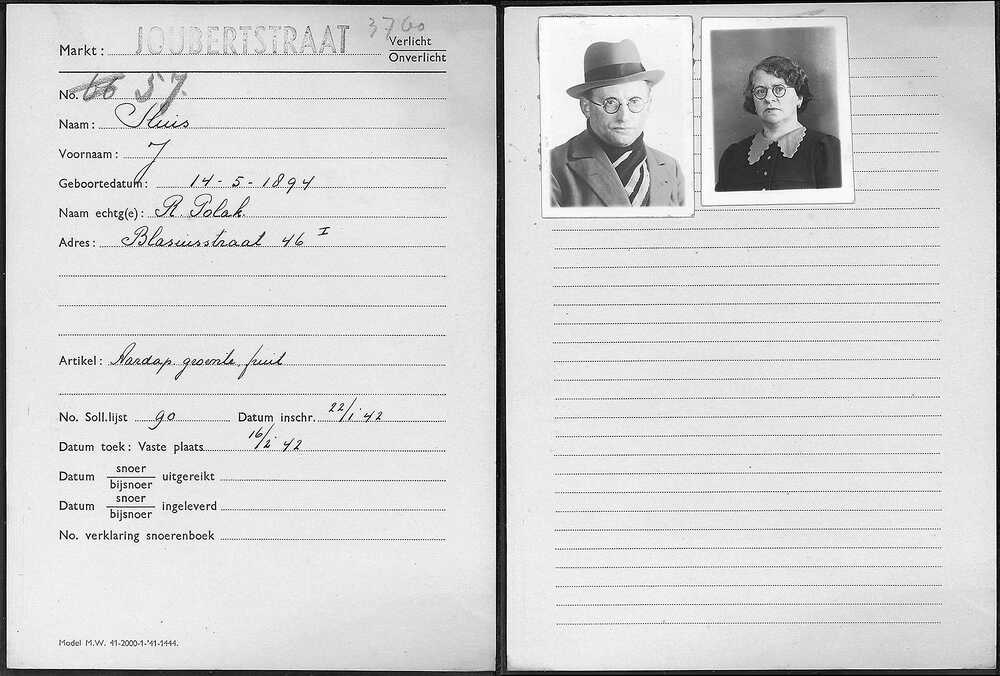 3760
Markt: JOUBERTSTRAAT Verlicht
Onverlicht
No. 66 57.
Naam: Sluis
Voornaam: J
Geboortedatum: 14-5-1894
Naam echtg(e): R. Polak
Adres: Blasiusstraat 46 I
Artikel: Aardap. groente, fruit
No. Soll.lijst 90 Datum inschr. 22/1 '42
Datum toek: Vaste plaats 16/2 '42
Datum snoer uitgereikt
bijsnoer
Datum snoer ingeleverd
bijsnoer
No. verklaring snoerenboek
Model M.W. 41-2000-1-'41-1444.